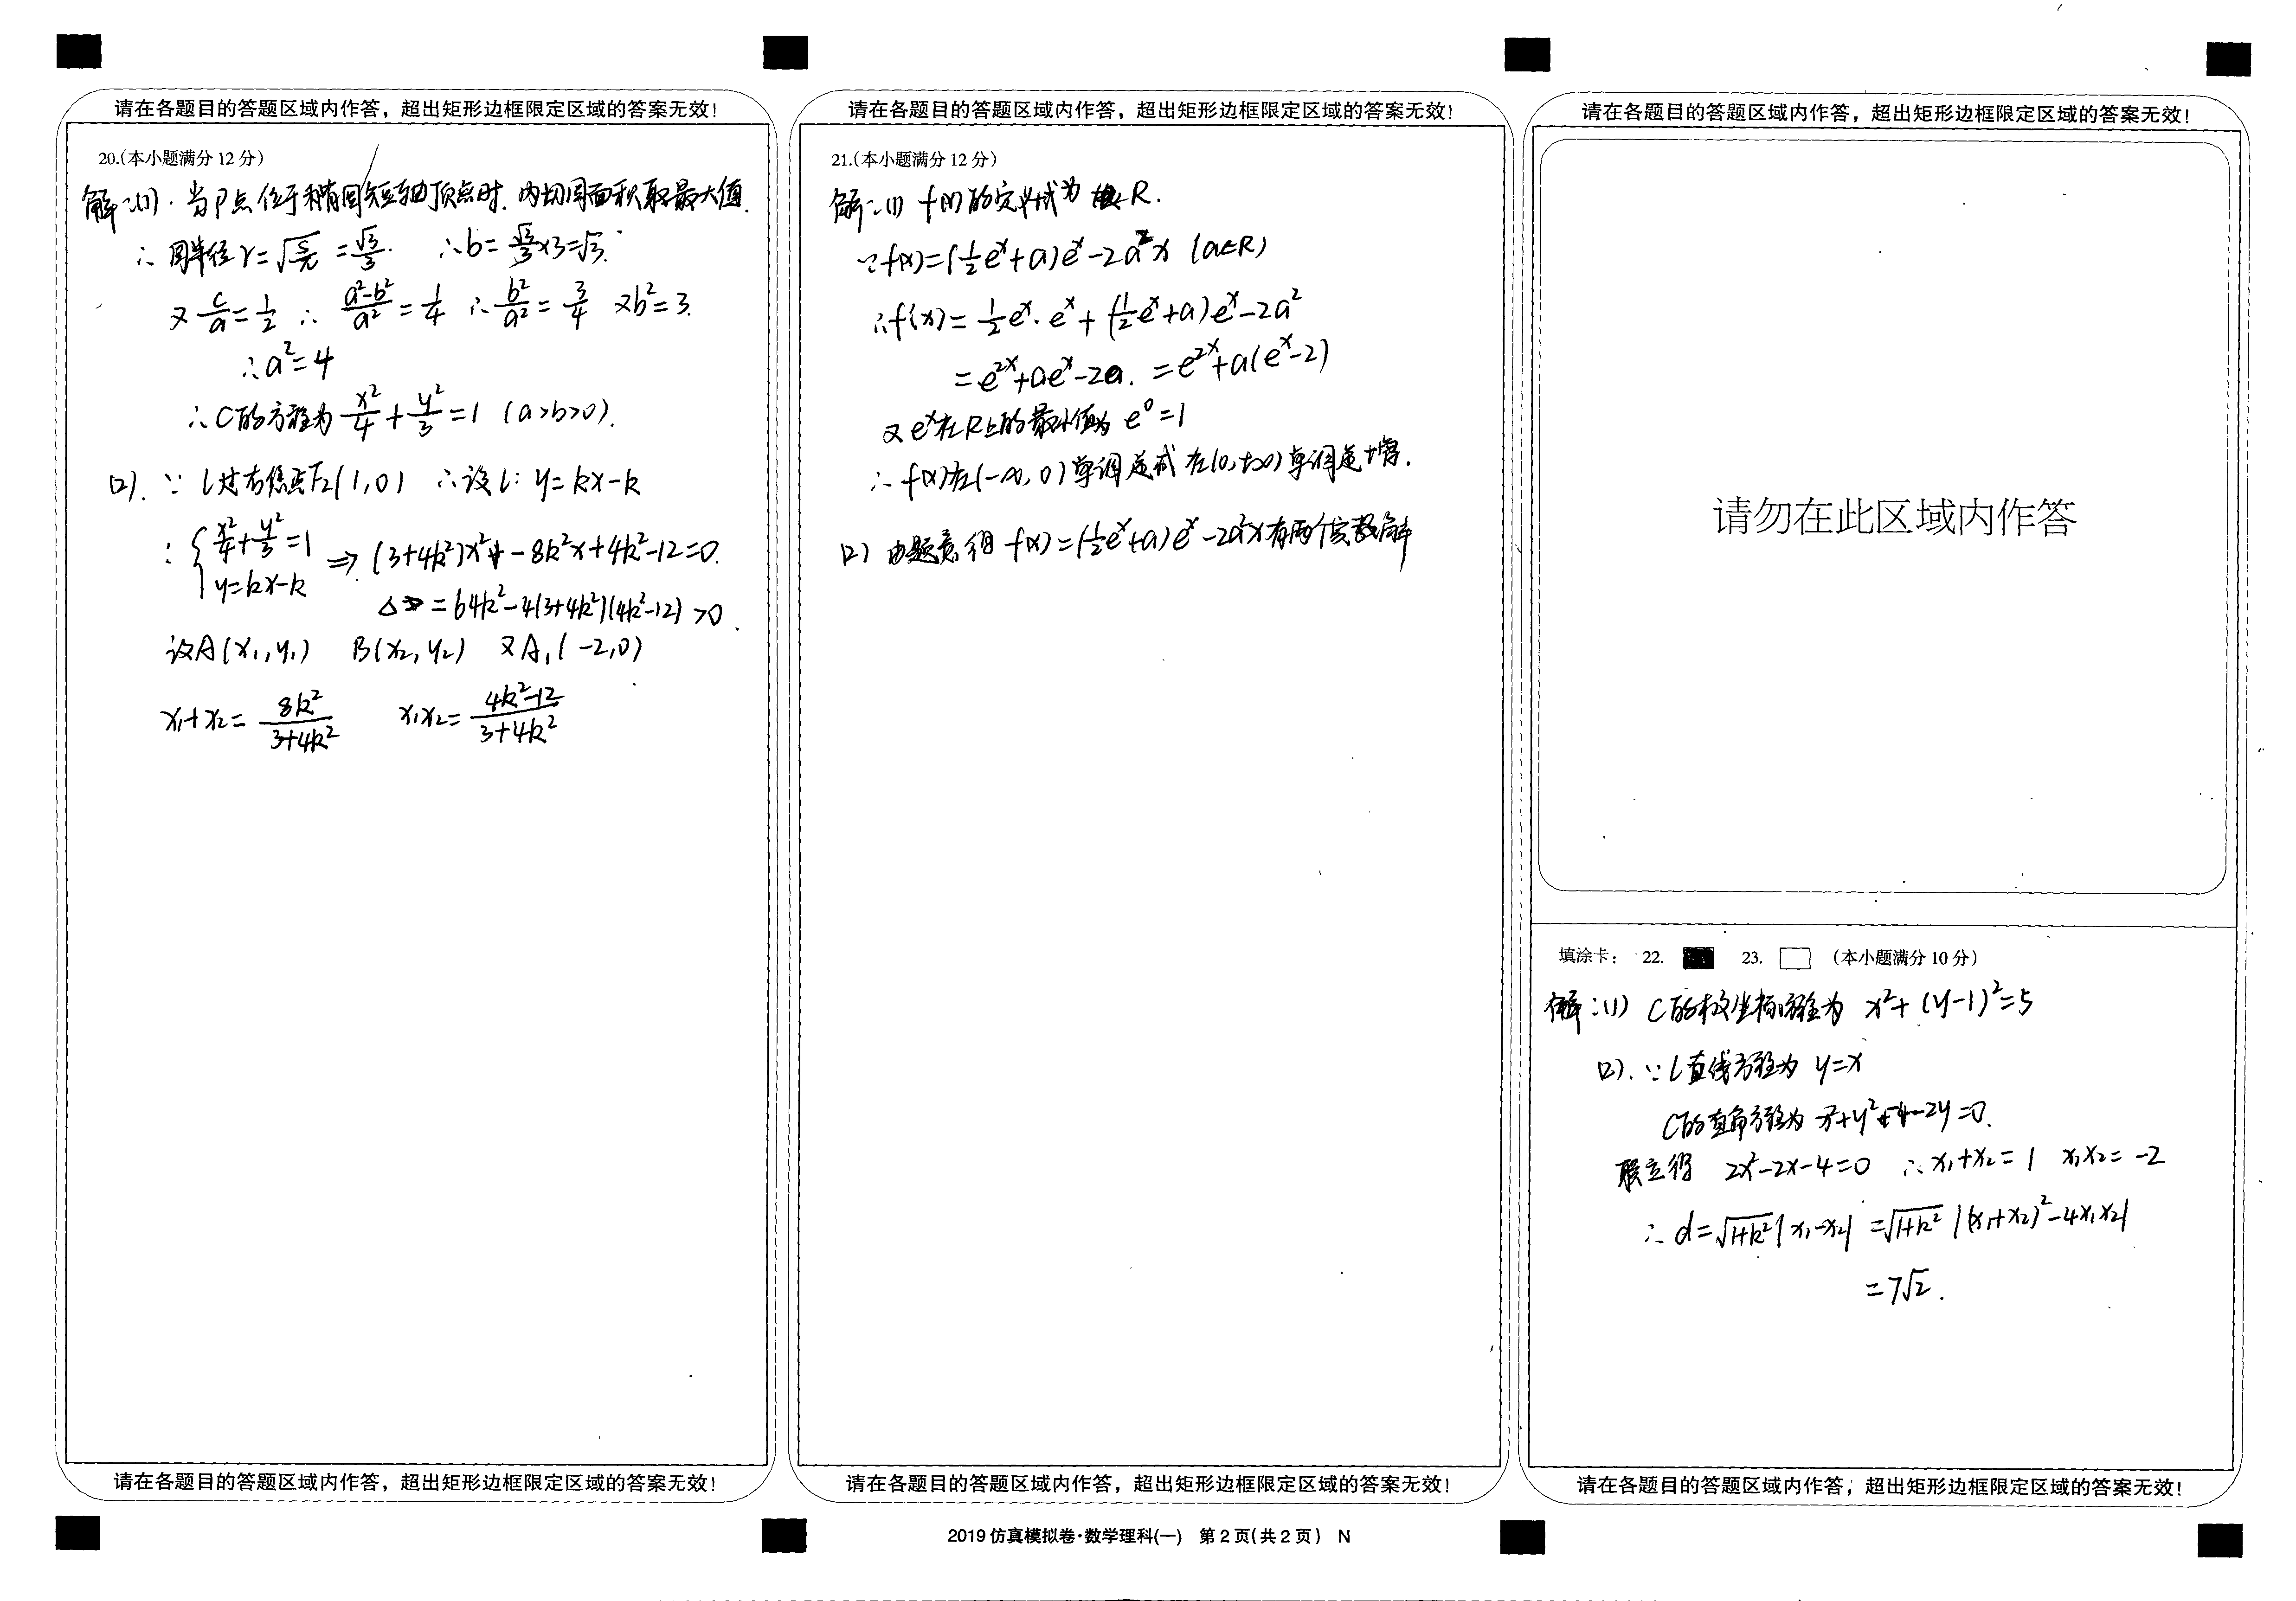 请在各题目的答题区域内作答，超出矩形边框限定区域的答案无效！
20.(本小题满分 12 分)
解:(1). 当P点位于椭圆短轴顶点时. 内切圆面积取最大值.
∴ 圆半径 r=√(S/π) = √3/3. ∴b= √3/3×3=√3.
又 c/a=1/2 ∴ (a²-b²)/a² = 1/4 ∴ b²/a² = 3/4 又b²=3.
∴a²=4
∴C的方程为 x²/4 + y²/3 =1 (a>b>0).
(2). ∵ l过右焦点F₂(1,0) ∴设l: y=kx-k
∴ { x²/4+y²/3=1
y=kx-k ⇒ (3+4k²)x² -8k²x+4k²-12=0.
Δ =64k²-4(3+4k²)(4k²-12) >0.
设A(x₁,y₁) B(x₂,y₂) 又A₁(-2,0)
x₁+x₂= 8k²/(3+4k²) x₁x₂= (4k²-12)/(3+4k²)
请在各题目的答题区域内作答，超出矩形边框限定区域的答案无效！
请在各题目的答题区域内作答，超出矩形边框限定区域的答案无效！
21.(本小题满分 12 分)
解:(1) f(x)的定义域为 R.
∵f(x)=(½eˣ+a)eˣ-2a²x (a∈R)
∴f'(x)= ½eˣ·eˣ+(½eˣ+a)eˣ-2a²
=e²ˣ+aeˣ-2a. =e²ˣ+a(eˣ-2)
又eˣ在R上的最小值为 e⁰=1
∴ f(x)在(-∞,0)单调递减 在(0,+∞)单调递增.
(2) 由题意得 f(x)=(½eˣ+a)eˣ-2a²x有两个实数解
请在各题目的答题区域内作答，超出矩形边框限定区域的答案无效！
2019 仿真模拟卷·数学理科(一) 第 2 页(共 2 页) N
请在各题目的答题区域内作答，超出矩形边框限定区域的答案无效！
请勿在此区域内作答
填涂卡： 22. 23. (本小题满分 10 分)
解:(1) C的极坐标方程为 x²+(y-1)²=5
(2). ∵l直线方程为 y=x
C的直角方程为 x²+y²-4-2y=0.
联立得 2x²-2x-4=0 ∴x₁+x₂=1 x₁x₂=-2
∴ d=√(1+k²)|x₁-x₂| =√(1+k²) |(x₁+x₂)²-4x₁x₂|
=7√2.
请在各题目的答题区域内作答，超出矩形边框限定区域的答案无效！